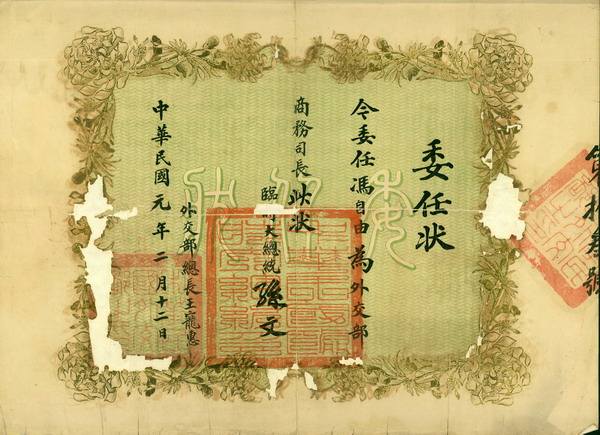 第拾叁號
委任狀
令委任馮自由為外交部
商務司長此狀
臨時大總統孫文
外交部總長王寵惠
中華民國元年二月十二日
委任狀